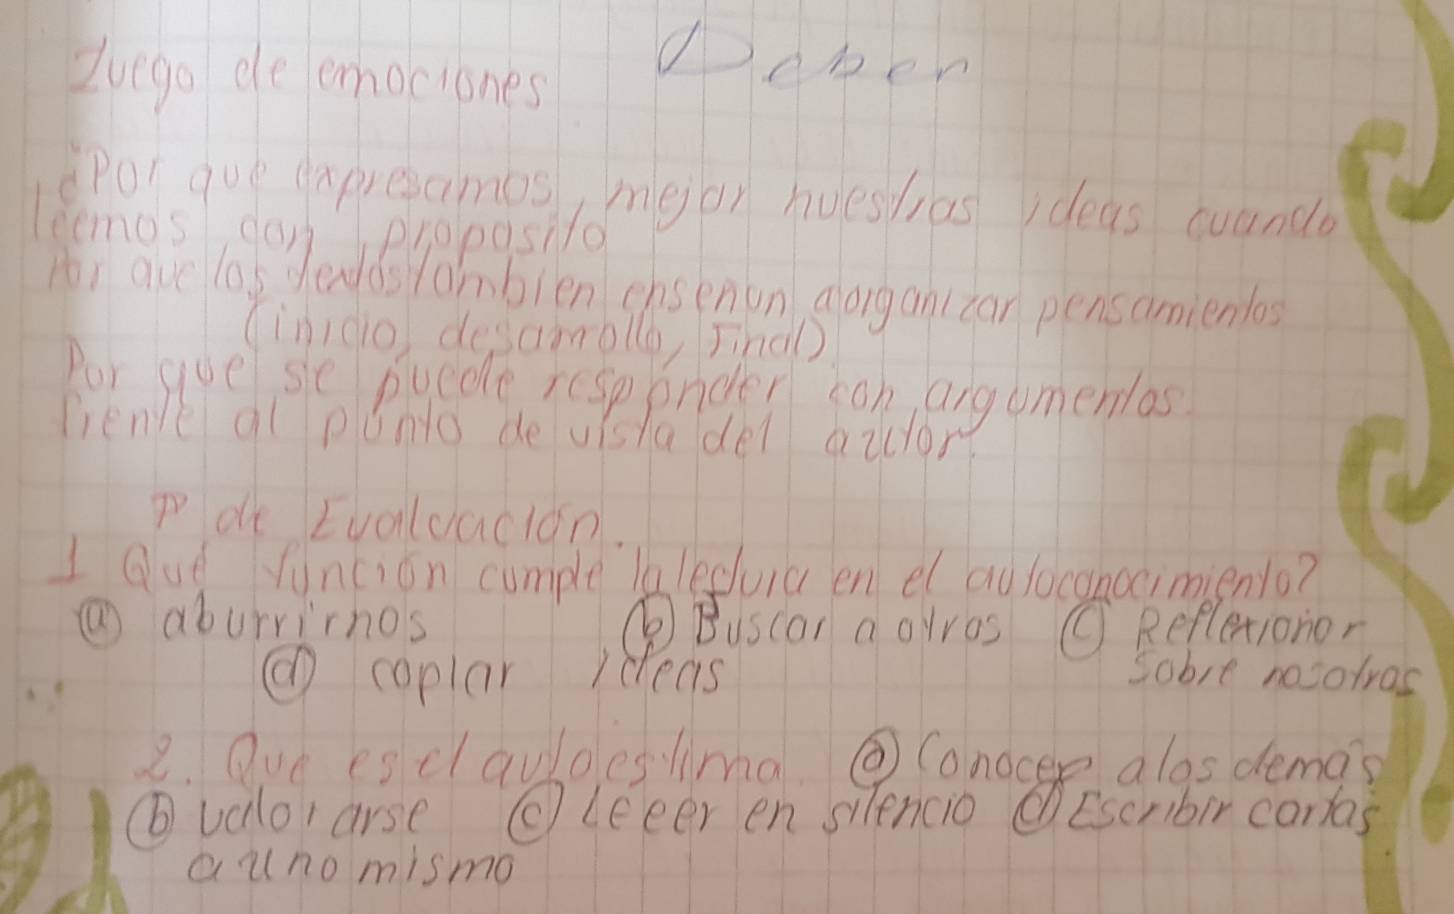 Juego de emociones Deber
¿Por que expresamos mejor nuestras ideas cuando
leemos con proposito
Por que los textos tambien ensenan a organizar pensamientos
(inicio, desarrollo, Final)
Por que se puede responder con argumentos
frente al punto de vista del autor.
P de Evaluación.
1 Qué función cumple la lectura en el autoconocimiento?
ⓐ aburrirnos ⓑ Buscar a otros ⓒ Reflexionar
sobre nosotros
ⓓ copiar ideas
2. Que es el autoestima ⓐ Conocer a los demás
ⓑ valorarse ⓒ Leeer en silencio ⓓ Escribir cartas
a uno mismo